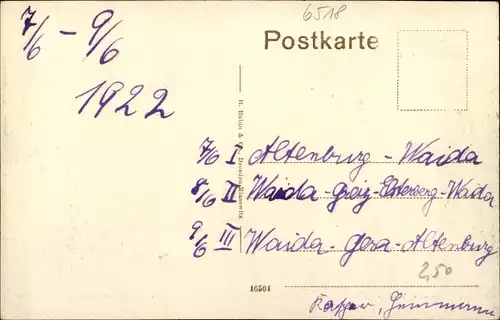 6518
7/6 – 9/6
Postkarte
1922
H. Rubin & Co., Dresden-Blasewitz
7/6 I Altenburg – Waida
8/6 II Waida – Greiz – Elsterberg – Waida
9/6 III Waida – Gera – Altenburg
2,50
16501